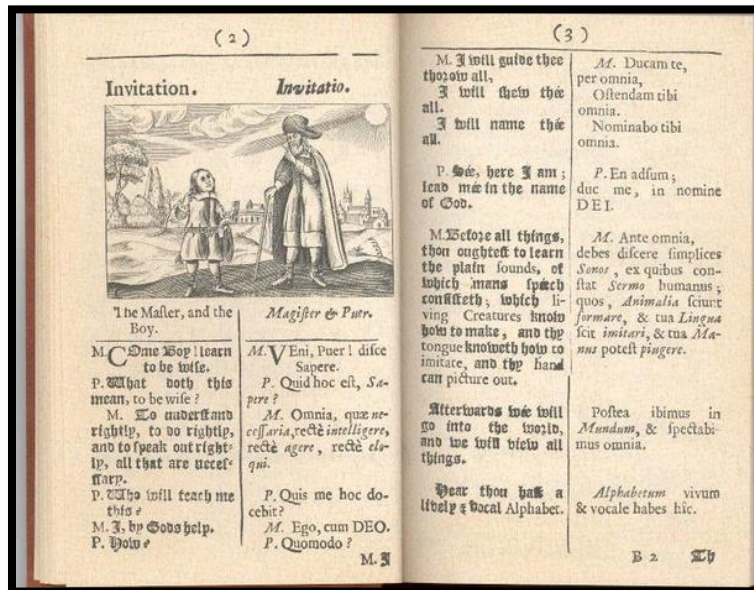 (2)
Invitation.
The Maſter, and the
Boy.
M. COme Boy! learn
to be wiſe.
P. What doth this
mean, to be wiſe?
M. To underſtand
rightly, to do rightly,
and to ſpeak out right-
ly, all that are neceſ-
ſary.
P. Who will teach me
this?
M. I, by Gods help.
P. How?
Invitatio.
Magiſter & Puer.
M. VEni, Puer! diſce
Sapere.
P. Quid hoc eſt, Sa-
pere?
M. Omnia, quæ ne-
ceſſaria, rectè intelligere,
rectè agere, rectè elo-
qui.
P. Quis me hoc do-
cebit?
M. Ego, cum DEO.
P. Quomodo?
M. I
(3)
M. I will guide thee
thorow all,
I will ſhew thée
all.
I will name thée
all.
P. Sée, here I am;
lead mée in the name
of God.
M. Before all things,
thou oughteſt to learn
the plain ſounds, of
which mans ſpéech
conſiſteth; which li-
ving Creatures know
how to make, and thy
tongue knoweth how to
imitate, and thy hand
can picture out.
Afterwards wée will
go into the world,
and we will view all
things.
Hear thou haſt a
lively & vocal Alphabet.
M. Ducam te,
per omnia,
Oſtendam tibi
omnia.
Nominabo tibi
omnia.
P. En adſum;
duc me, in nomine
DEI.
M. Ante omnia,
debes diſcere ſimplices
Sonos, ex quibus con-
ſtat Sermo humanus;
quos, Animalia ſciunt
formare, & tua Lingua
ſcit imitari, & tua Ma-
nus poteſt pingere.
Poſtea ibimus in
Mundum, & ſpectabi-
mus omnia.
Alphabetum vivum
& vocale habes hîc.
B 2 Th